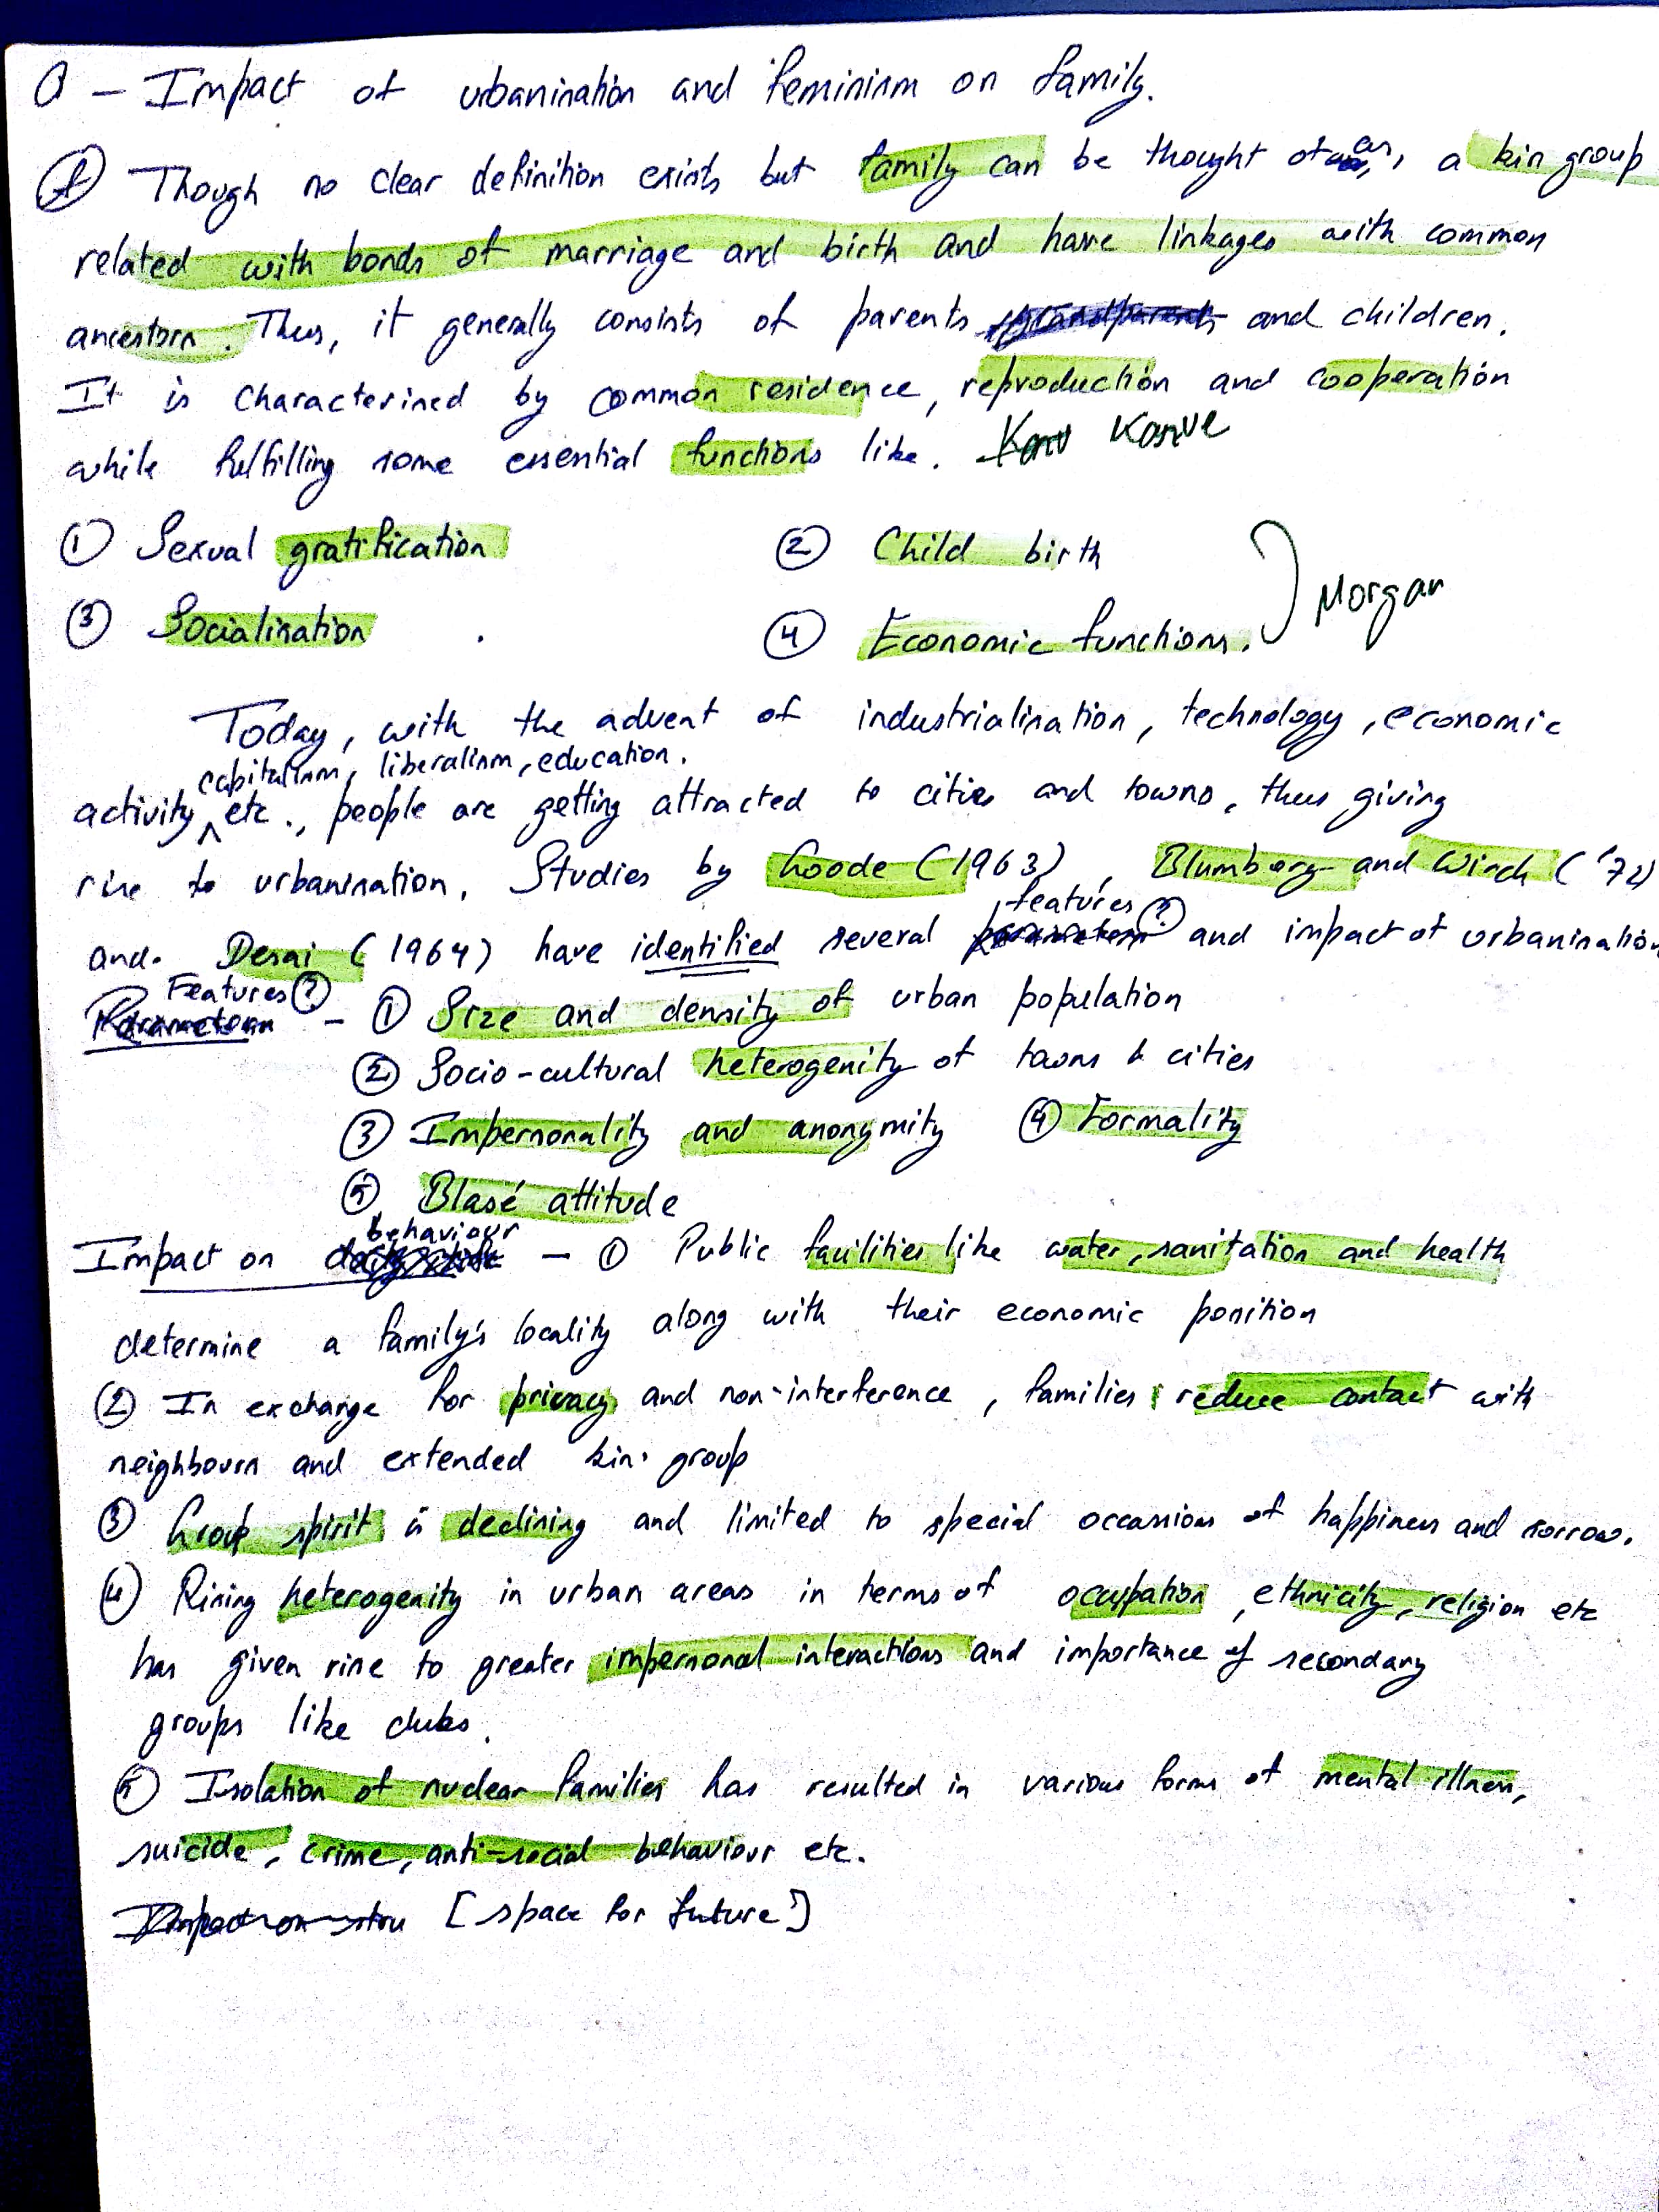 Q - Impact of urbanisation and feminism on family.
A Though no clear definition exists but family can be thought of as, a kin group
related with bonds of marriage and birth and have linkages with common
ancestors. Thus, it generally consists of parents grandparents and children.
It is characterised by common residence, reproduction and cooperation
while fulfilling some essential functions like.
① Sexual gratification ② Child birth
③ Socialisation ④ Economic functions. Morgan
Today, with the advent of industrialisation, technology, economic
capitalism, liberalism, education.
activity, etc., people are getting attracted to cities and towns, thus giving
rise to urbanisation. Studies by Goode (1963), Blumberg and Winch ('72)
features ?
and. Desai (1964) have identified several parameters and impact of urbanisation
Features ?
Parameters - ① Size and density of urban population
② Socio-cultural heterogenity of towns & cities
③ Impersonality and anonymity ④ Formality
⑤ Blasé attitude
behaviour
Impact on - ① Public facilities like water, sanitation and health
determine a family's locality along with their economic position
② In exchange for privacy and non-interference, families reduce contact with
neighbours and extended kin group
③ Group spirit is declining and limited to special occassions of happiness and sorrow.
④ Rising heterogenity in urban areas in terms of occupation, ethnicity, religion etc
has given rise to greater impersonal interactions and importance of secondary
groups like clubs.
⑤ Isolation of nuclear families has resulted in various forms of mental illness,
suicide, crime, anti-social behaviour etc.
Impact on [space for future]